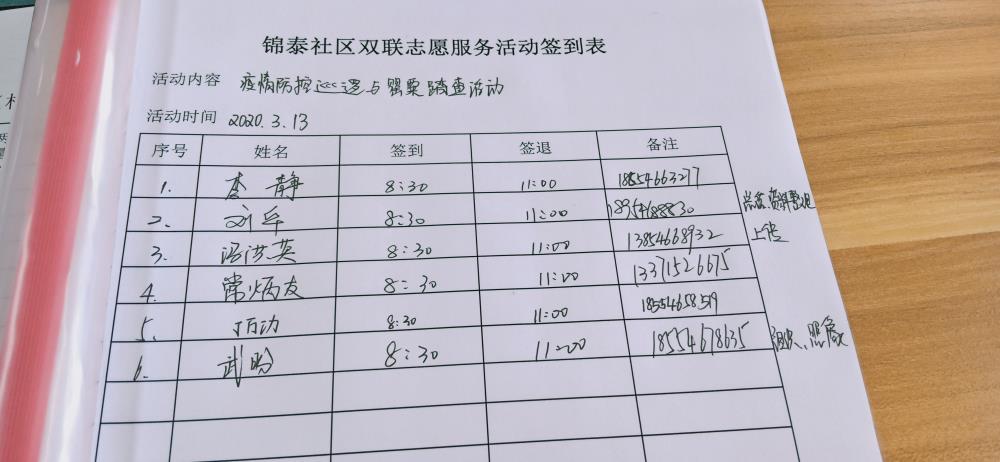 锦泰社区双联志愿服务活动签到表
活动内容 疫情防控巡逻与罂粟踏查活动
活动时间 2020.3.13
序号 姓名 签到 签退 备注
1. 李静 8:30 11:00 18554663277
2. 刘军 8:30 11:00 18954688830 资料整理
3. 冯洪英 8:30 11:00 13854668932 上传
4. 常炳友 8:30 11:00 13371526675
5. 8:30 11:00 18554658519
6. 武盼 8:30 11:00 18554678635 照像